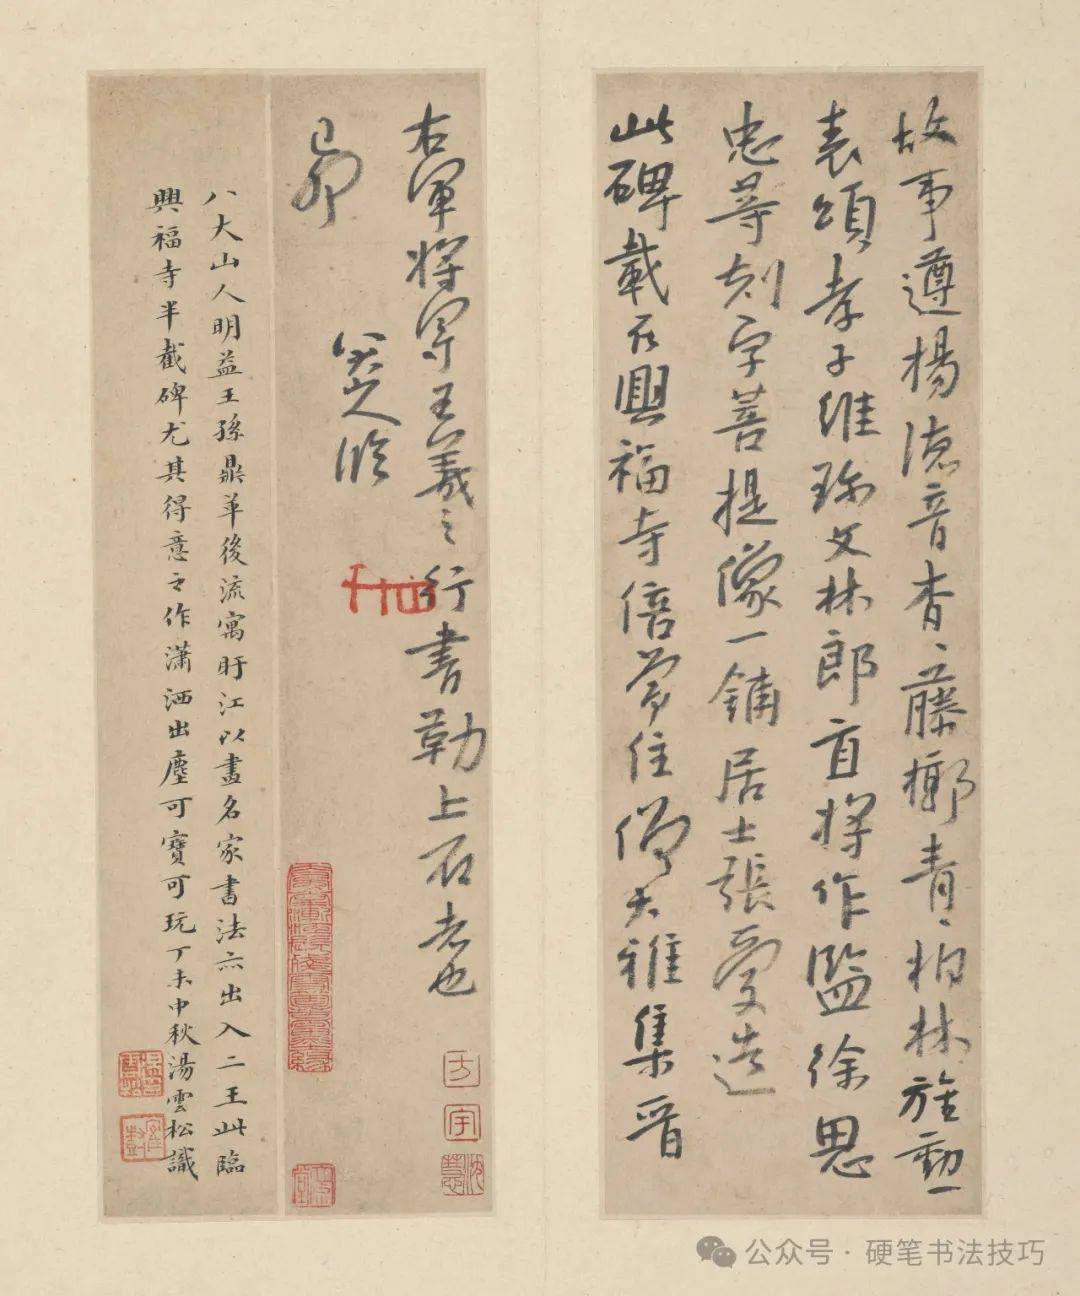 故事遵楊德音杳、藤槨青、柏林旌勳一
表頌孝子維珎文林郎直將作監徐思
忠等刻字菩提像一鋪居士張愛造
此碑載在興福寺倍常住僧大雅集晉
右軍將軍王羲之行書勒上石者也
八大人臨
己卯
八大山人明益王孫鼎革後流寓盱江以畫名家書法亦出入二王此臨
興福寺半截碑尤其得意之作瀟洒出塵可寶可玩丁未中秋湯雲松識
方
宇
沈慧
公众号·硬笔书法技巧